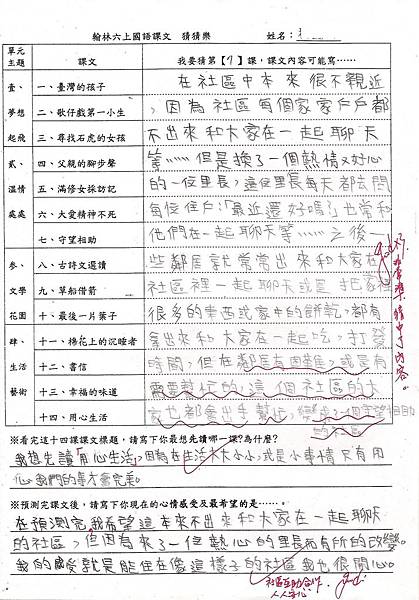 翰林六上國語課文 猜猜樂 姓名：
單元主題 課文 我要猜第【7】課，課文內容可能寫……
壹、夢想起飛
一、臺灣的孩子
二、歌仔戲第一小生
三、尋找石虎的女孩
貳、溫情處處
四、父親的腳步聲
五、滿修女採訪記
六、大愛精神不死
七、守望相助
參、文學花園
八、古詩文選讀
九、草船借箭
十、最後一片葉子
肆、生活藝術
十一、棉花上的沉睡者
十二、書信
十三、幸福的味道
十四、用心生活
在社區中本來很不親近
，因為社區每個家家戶戶都
不出來和大家在一起聊天
等……但是換了一個熱情又好心
的一位里長，這位里長每天都去問
每位住戶：「最近還好嗎」也常和
他們在一起聊天等……之後一
些鄰居就常常出來和大家在
社區裡一起聊天或是把家裡
很多的東西或家中的餅乾，都有
拿出來和大家在一起吃，打發
時間，但在鄰居有困難，或是有
需要幫忙的，這個社區的大
家也都會出手幫忙，變成一個守望相助
的社區。
good 好
非常準，猜中了內容。
※看完這十四課課文標題，請寫下你最想先讀哪一課?為什麼?
我想先讀用心生活，因為在生活大大小小，或是小事情只有用
心我們的事才會完美。
※預測完課文後，請寫下你現在的心情感受及最希望的是……。
在預測完我希望這本來不出來和大家在一起聊天
的社區，但因為來了一位熱心的里長而有所的改變。
我的感受就是能住在像這樣子的社區我也很開心。
社區互助合作，人人開心
good